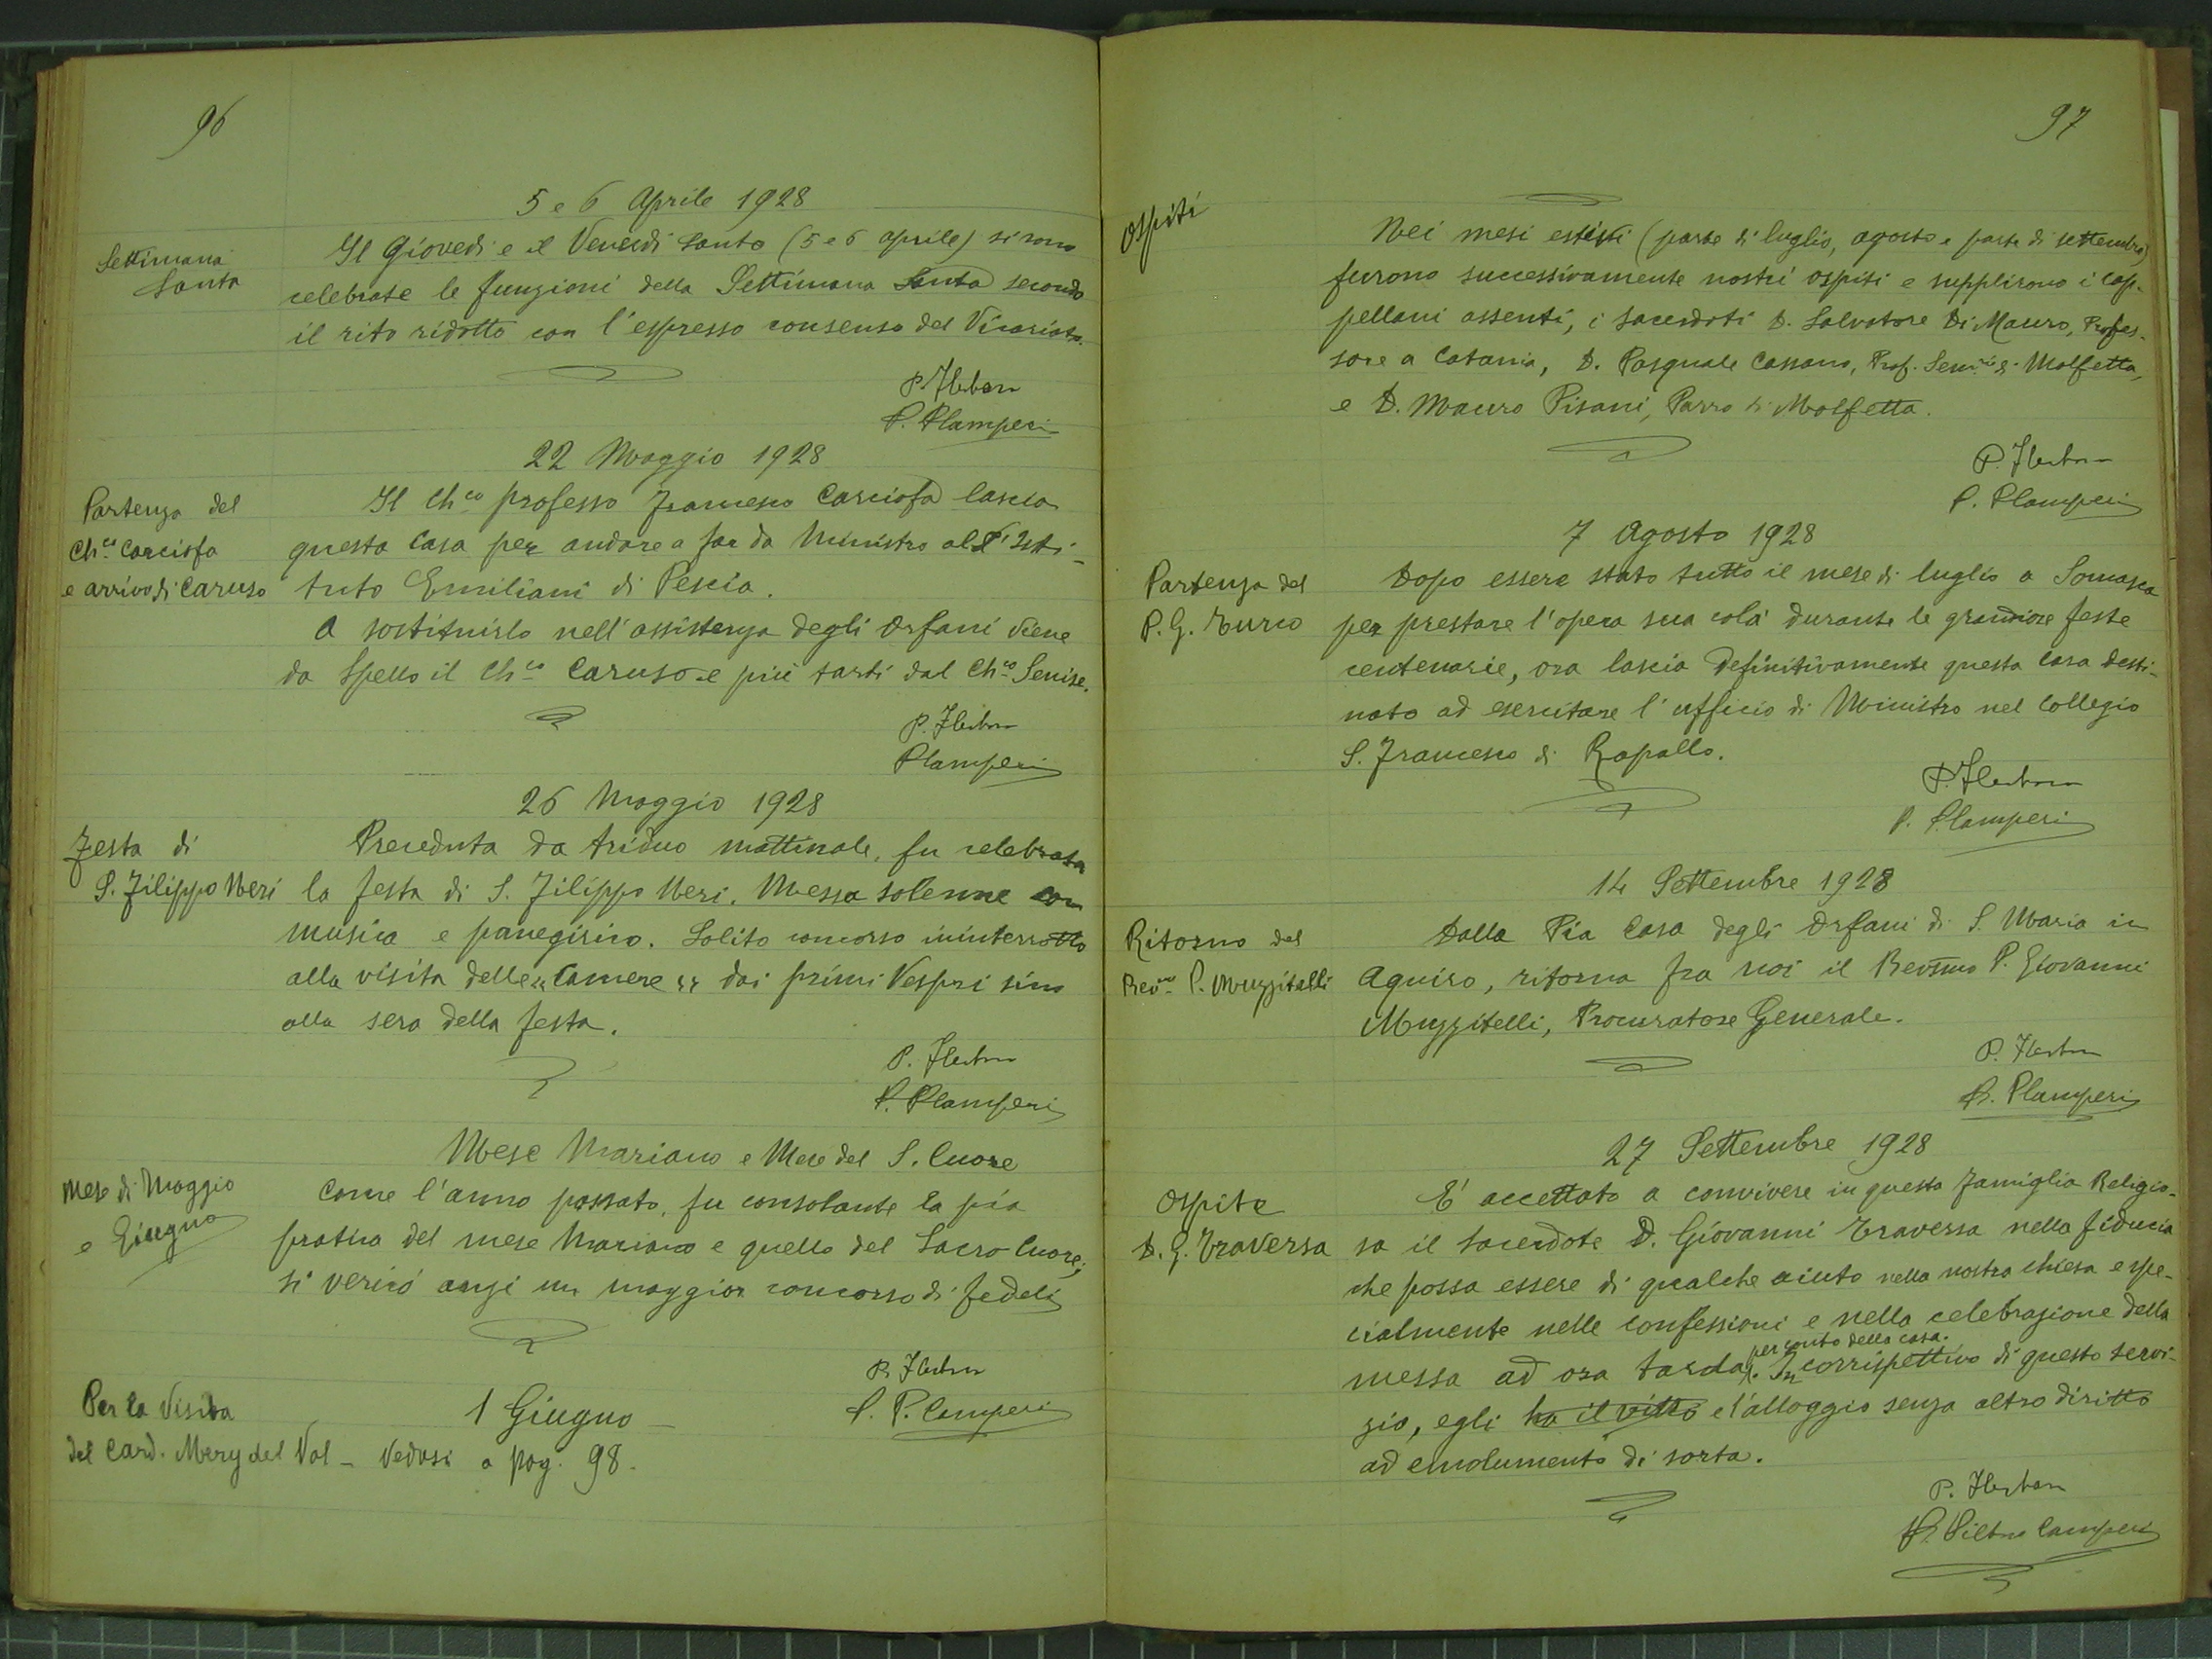 96
5 e 6 Aprile 1928
Settimana
Santa
Il Giovedì e il Venerdì Santo (5 e 6 aprile) si sono
celebrate le funzioni della Settimana Santa secondo
il rito ridotto con l'espresso consenso del Vicariato.
P. Plamperi
22 Maggio 1928
Partenza del
Ch.co Carciofa
e arrivo di Caruso
Il Ch.co professo Francesco Carciofa lascia
questa Casa per andare a far da Ministro all'Isti-
tuto Emiliani di Pescia.
A sostituirlo nell'assistenza degli Orfani viene
da Spello il Ch.co Caruso e più tardi dal Ch.co Senise.
Plamperi
26 Maggio 1928
Festa di
S. Filippo Neri
Preceduta da triduo mattinale, fu celebrata
la festa di S. Filippo Neri. Messa solenne con
musica e panegirico. Solito concorso ininterrotto
alla visita delle "Camere" dai primi Vespri sino
alla sera della festa.
P. Plamperi
Mese Mariano e Mese del S. Cuore
Mese di Maggio
e Giugno
Come l'anno passato, fu consolante la pia
pratica del mese Mariano e quello del Sacro Cuore;
si vericò anzi un maggior concorso di fedeli
P. P. Camperi
1 Giugno -
Per la Visita
del Card. Mery del Val - Vedasi a pag. 98.
97
Ospiti
Nei mesi estivi (parte di luglio, agosto e parte di settembre)
furono successivamente nostri ospiti e supplirono i cap-
pellani assenti, i sacerdoti D. Salvatore Di Mauro, Profes-
sore a Catania, D. Pasquale Cassano, Prof. Sem.rio di Molfetta,
e D. Mauro Pisani, Parro di Molfetta.
P. Plamperi
7 Agosto 1928
Partenza del
P. G. Turco
Dopo essere stato tutto il mese di luglio a Somasca
per prestare l'opera sua colà durante le grandiose feste
centenarie, ora lascia definitivamente questa Casa desti-
nato ad esercitare l'ufficio di Ministro nel Collegio
S. Francesco di Rapallo.
P. Plamperi
14 Settembre 1928
Ritorno del
Rev.mo P. Muzzitelli
Dalla Pia Casa degli Orfani di S. Maria in
Aquiro, ritorna fra noi il Rev͞smo P. Giovanni
Muzzitelli, Procuratore Generale.
P. Plamperi
27 Settembre 1928
Ospite
D. G. Traversa
E' accettato a convivere in questa Famiglia Religio-
sa il Sacerdote D. Giovanni Traversa nella fiducia
che possa essere di qualche aiuto nella nostra chiesa e spe-
cialmente nelle confessioni e nella celebrazione della
per conto della casa.
messa ad ora tarda. In corrispettivo di questo servi-
zio, egli ha il vitto e l'alloggio senza altro diritto
ad emolumento di sorta.
P. Pietro Camperi